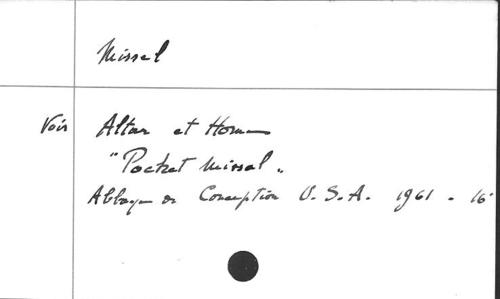 Missel
Voir Altar et Home
"Pocket Missal"
Abbaye de Conception U.S.A. 1961 - 16°